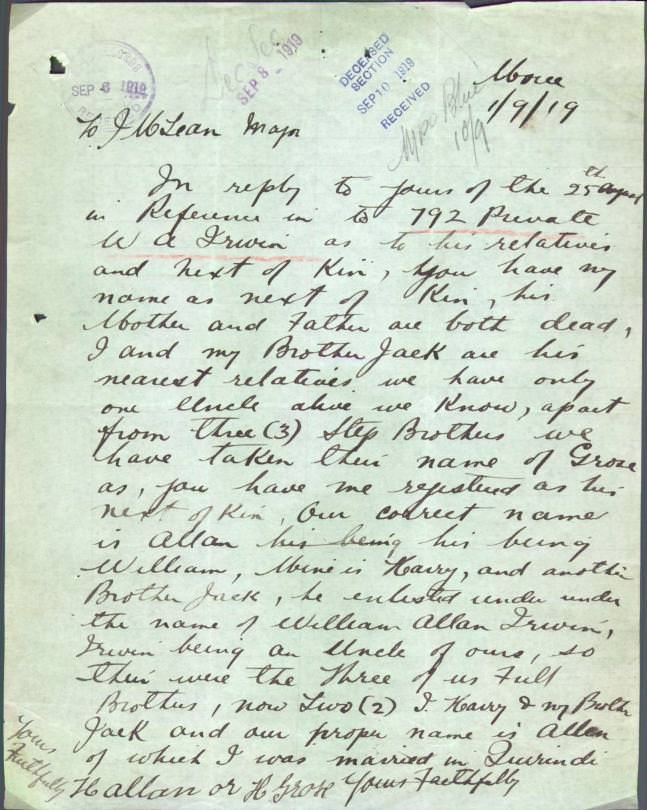 SEP 6 1919
SEP 8 - 1919
DECEASED
SECTION
SEP 10 1919
RECEIVED
Moree
1/9/19
10/9
To J McLean Major
In reply to yours of the 25th August
in Reference in to 792 Private
W A Irwin as to his relatives
and next of Kin, you have my
name as next of Kin, his
Mother and Father are both dead,
I and my Brother Jack are his
nearest relatives we have only
one Uncle alive we Know, apart
from three (3) Step Brothers we
have taken their name of Grose
as, you have me registerd as his
next of Kin, Our correct name
is Allan his being his being
William, Mine is Harry, and another
Brother Jack, he enlisted under under
the name of William Allan Irwin,
Irwin being an Uncle of ours, so
their were the Three of us Full
Brothers, now Two (2) I Harry & my Brother
Jack and our proper name is Allan
of which I was married in Quirindi
H allan or H Grose Yours Faithfully
Yours
Faithfully